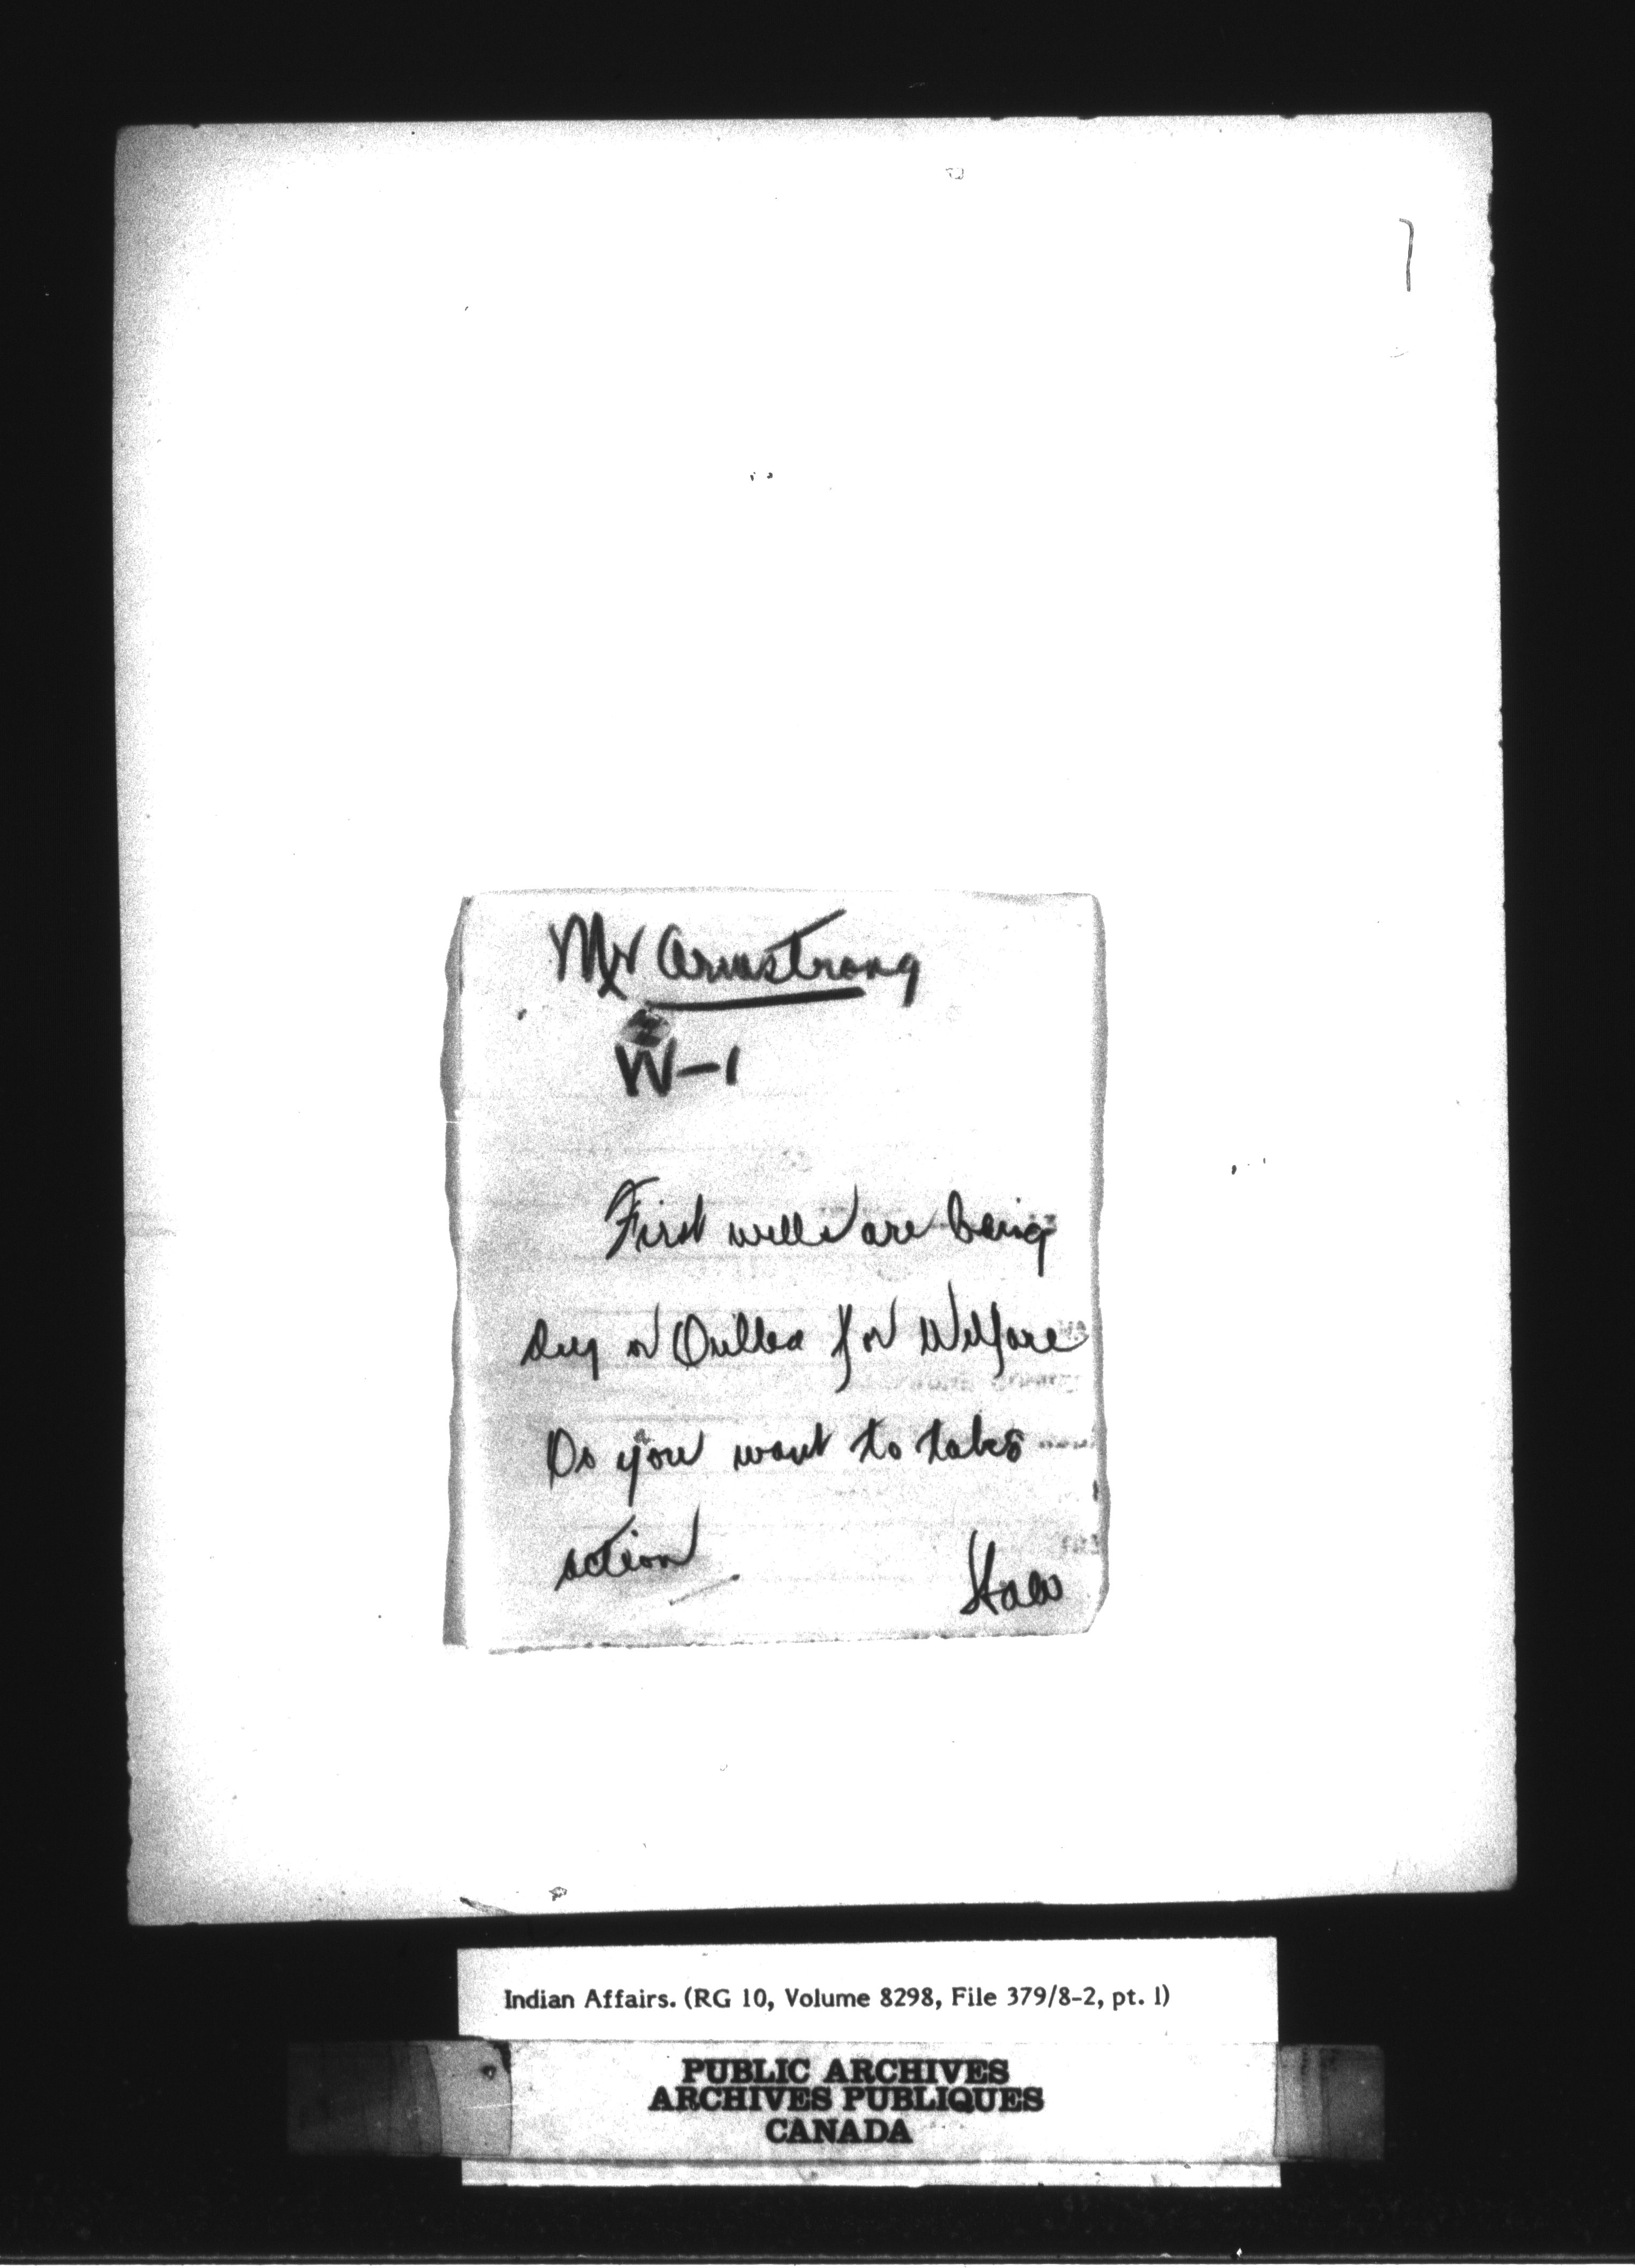 Mr Armstrong
W-1
First wells are being
dug or Drilled for Welfare
Do you want to take
action
Indian Affairs. (RG 10, Volume 8298, File 379/8-2, pt. 1)
PUBLIC ARCHIVES
ARCHIVES PUBLIQUES
CANADA